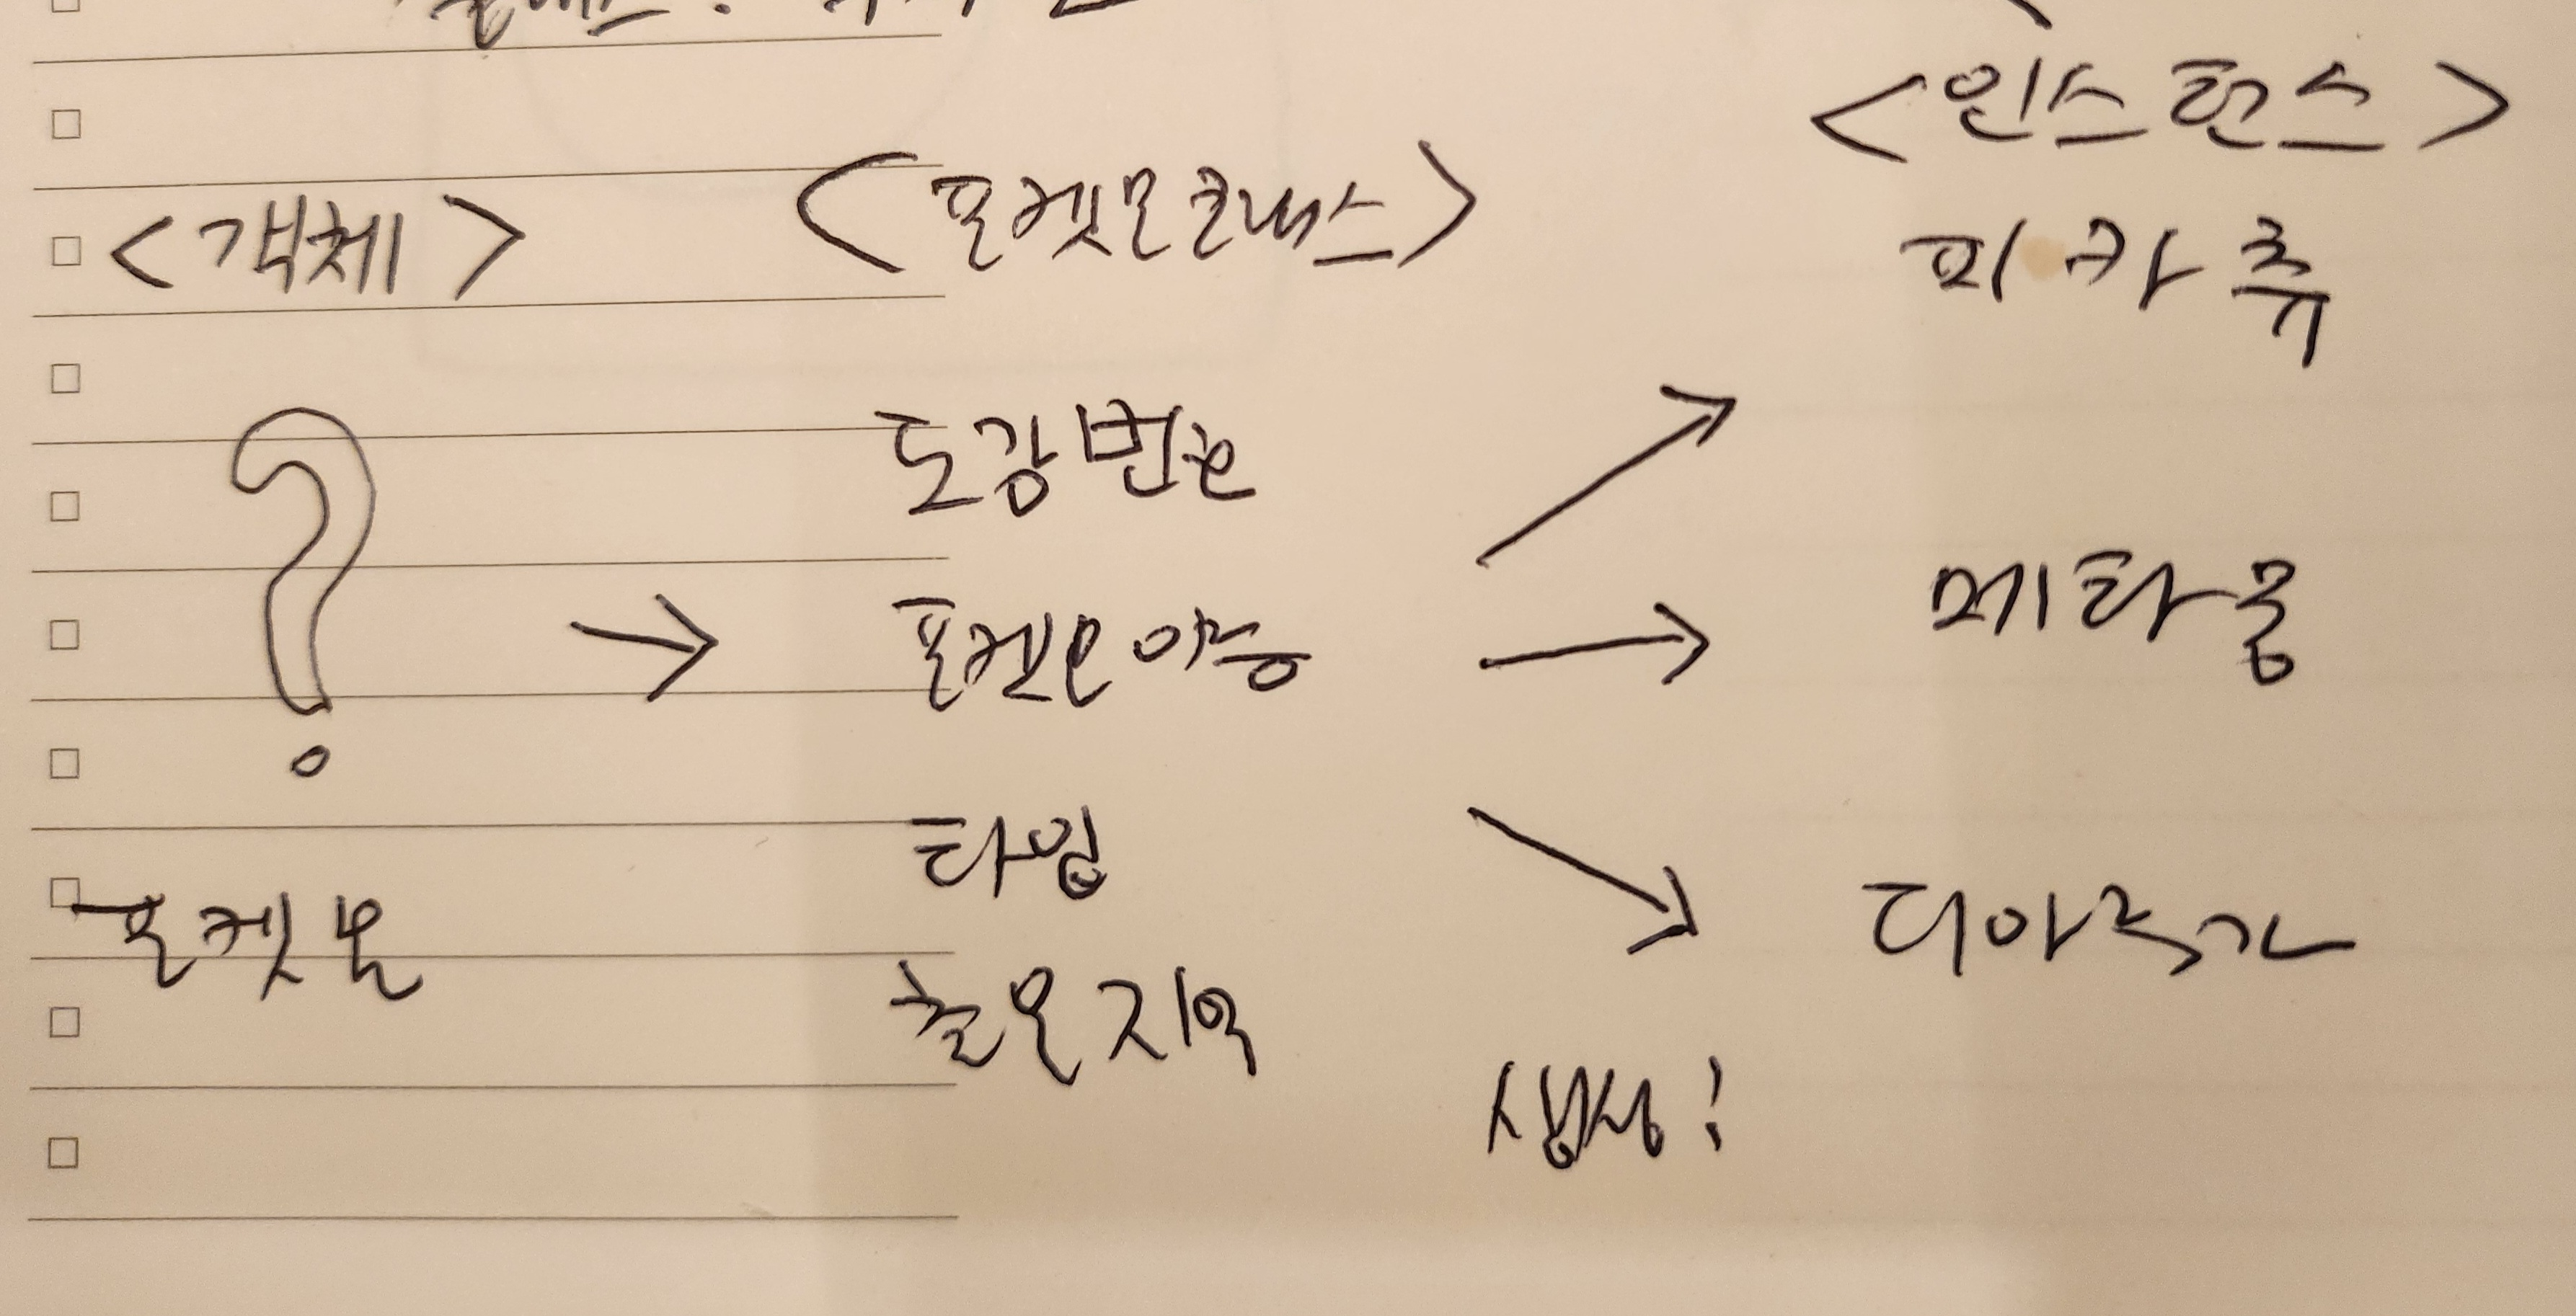 <인스턴스>
<객체>
<포켓몬클래스>
피카츄
도감번호
?
포켓몬이름
메타몽
타입
포켓몬
디아루가
출몰지역
생성!